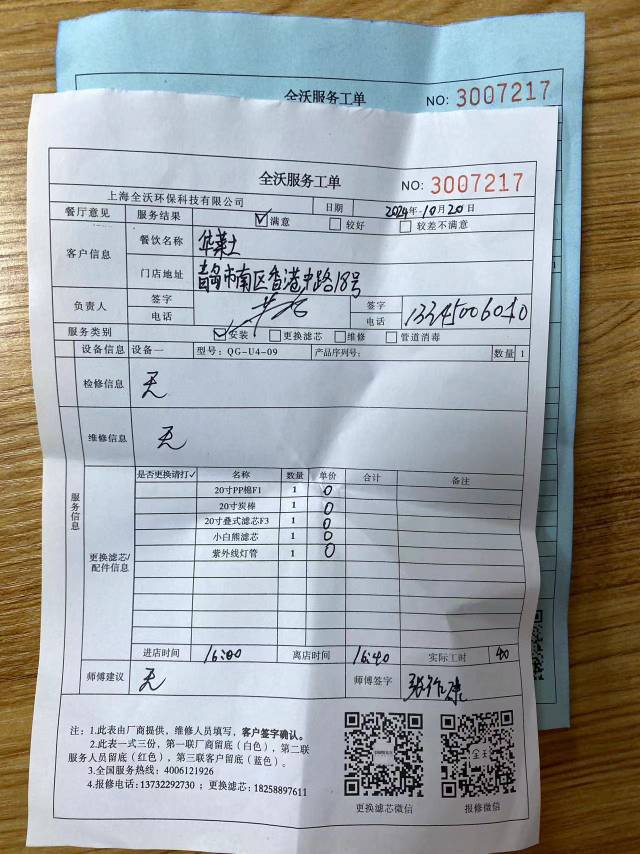 全沃服务工单 NO: 3007217
全沃服务工单 NO: 3007217
上海全沃环保科技有限公司 日期 2024年10月20日
餐厅意见 服务结果 ☑满意 □较好 □较差不满意
客户信息 餐饮名称 华莱士
门店地址 青岛市南区香港中路18号
负责人 签字 签字
电话 电话 13345006040
服务类别 ☑安装 □更换滤芯 □维修 □管道消毒
设备信息 设备一 型号: QG-U4-09 产品序列号: 数量 1
检修信息 无
维修信息 无
服务信息
更换滤芯/配件信息
是否更换请打✓ 名称 数量 单价 合计 备注
20寸PP棉F1 1 0
20寸炭棒 1 0
20寸叠式滤芯F3 1 0
小白熊滤芯 1 0
紫外线灯管 1 0
进店时间 16:00 离店时间 16:40 实际工时 40
师傅建议 无 师傅签字
注: 1.此表由厂商提供，维修人员填写，客户签字确认。
2.此表一式三份，第一联厂商留底（白色），第二联
服务人员留底（红色），第三联客户留底（蓝色）。
3.全国服务热线: 4006121926
4.报修电话: 13732292730；更换滤芯: 18258897611
更换滤芯微信 报修微信
全沃